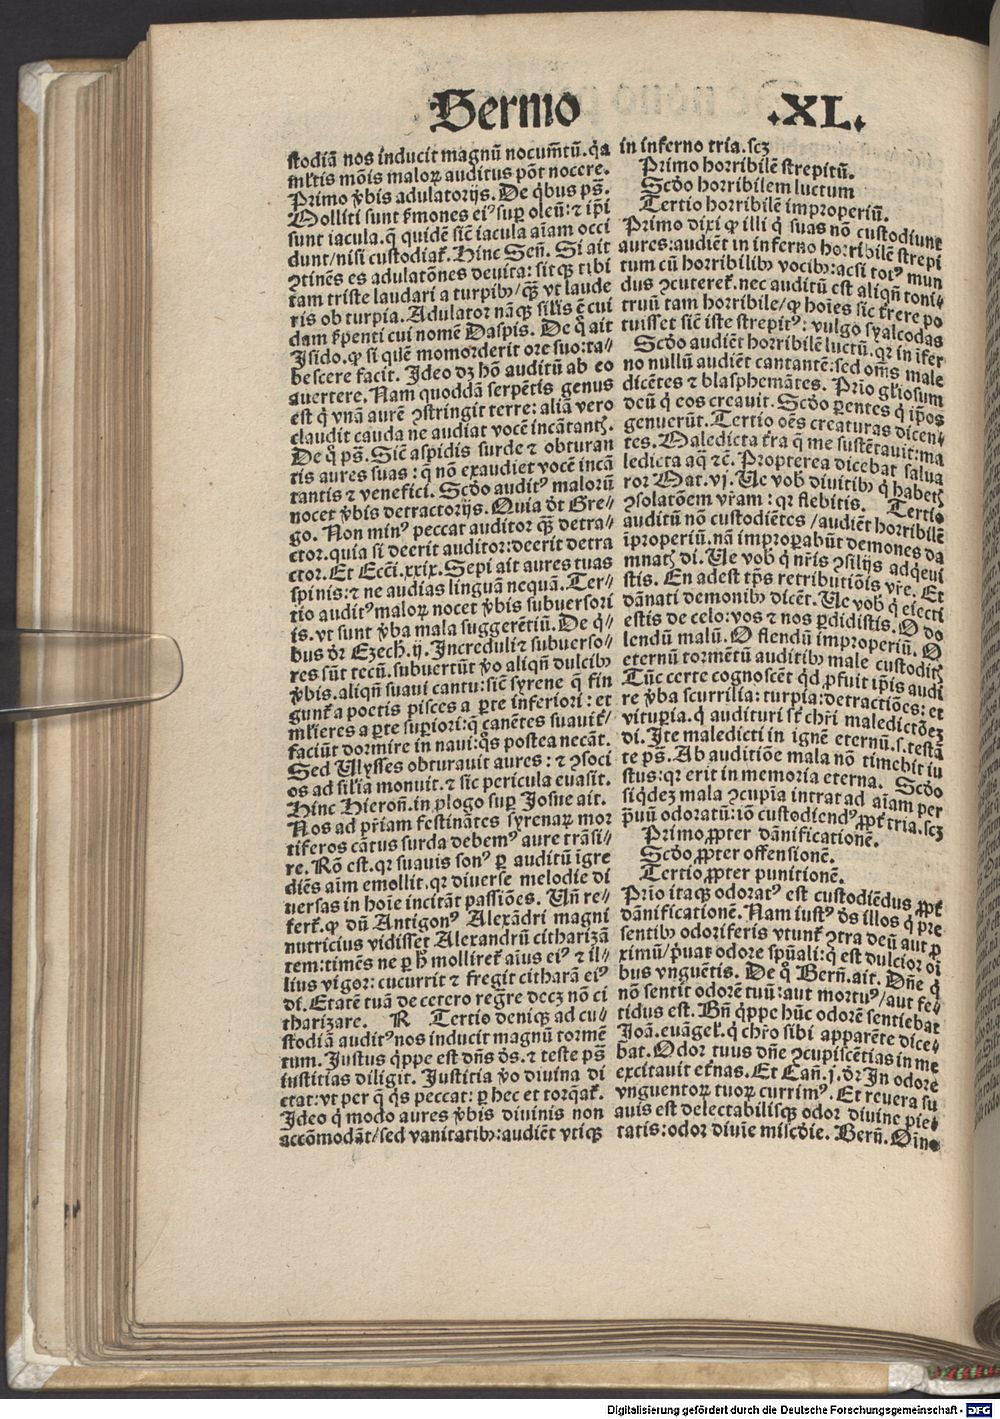 Sermo .XL.
stodiā nos inducit magnū nocumētū. q̇a
ml̓tis mōis maloꝝ auditus pōt nocere.
Primo v̓bis adulatorijs. De q̇bus pṡ.
Molliti sunt ẜmones ei⁹ suꝑ oleū: ⁊ ip̄i
sunt iacula. q̄ quidē sic̄ iacula aīam occi
dunt/nisi custodiat̄. Hinc Sen̄. Si ait
ꝯtinēs es adulatōnes deuita: sitqꝫ tibi
tam triste laudari a turpibꝰ/qꝫ̄ vt laude
ris ob turpia. Adulator nāqꝫ sil̓is ē cui
dam ẜpenti cui nomē Daspis. De q̇ ait
Isido. ꝙ si quē momorderit ore suo: ta⸗
bescere facit. Ideo dꝫ hō auditū ab eo
auertere. Nam quoddā serpētis genus
est q̇ vnā aurē ꝯstringit terre: aliā vero
claudit cauda ne audiat vocē incātant̄.
De q̇ pṡ. Sic̄ aspidis surde ⁊ obturan
tis aures suas: q̄ nō exaudiet vocē incā
tantis ⁊ venefici. Scd̓o audit⁹ malorū
nocet v̓bis detractorijs. Quia d̓t Gre⸗
go. Non min⁹ peccat auditor qꝫ̄ detra⸗
ctor. quia si deerit auditor: deerit detra
ctor. Et Ecci. xxix. Sepi ait aures tuas
spinis: ⁊ ne audias linguā nequā. Ter⸗
tio audit⁹ maloꝝ nocet v̓bis subuersori
is. vt sunt v̓ba mala suggerētiū. De q̇⸗
bus d̓r Ezech. ij. Increduli ⁊ subuerso⸗
res sūt tecū. subuertūt v̓o aliqn̄ dulcibꝰ
v̓bis. aliqn̄ suaui cantu: sic̄ syrene q̄ fin
gunt̄ a poetis pisces a ꝑte inferiori: et
ml̓ieres a ꝑte suꝑiori: q̄ canētes suauit̓
faciūt dormire in naui: q̇s postea necāt.
Sed Ulysses obturauit aures: ⁊ ꝯsoci
os ad sil̓ia monuit. ⁊ sic pericula euasit.
Hinc Hieron̄. in ꝓlogo suꝑ Iosue ait.
Nos ad pr̄iam festinātes syrenaꝝ mor
tiferos cātus surda debem⁹ aure trāsi⸗
re. Rō est. qꝛ suauis son⁹ ꝑ auditū īgre
diēs aīm emollit. qꝛ diuerse melodie di
uersas in hoīe incitāt passiōes. Un̄ re⸗
fert̄. ꝙ dū Antigon⁹ Alexādri magni
nutricius vidisset Alexandrū citharizā
tem: timēs ne ꝑ h̄ molliret̄ aīus ei⁹ ⁊ il⸗
lius vigor: cucurrit ⁊ fregit citharā ei⁹
di. Etatē tuā de cetero regr̄e decꝫ nō ci
tharizare. R Tertio deniqꝫ ad cu⸗
stodiā audit⁹ nos inducit magnū tormē
tum. Iustus q̇ppe est dn̄s d̓s. ⁊ teste pṡ
iustitias diligit. Iustitia v̓o diuina di
ctat: vt per q̄ q̇s peccat: ꝑ hec et torq̄at̄.
Ideo q̇ modo aures v̓bis diuinis non
accōmodāt/sed vanitatibꝰ: audiēt vtiqꝫ
in inferno tria. scꝫ
Primo horribilē strepitū.
Scd̓o horribilem luctum
Tertio horribilē improperiū.
Primo dixi ꝙ illi q̇ suas nō custodiunt
aures: audiēt in inferno horribilē strepi
tum cū horribilibꝰ vocibꝰ: acsi tot⁹ mun
dus ꝯcuteret̄. nec auditū est aliqn̄ toni⸗
truū tam horribile/ꝙ hoīes sic t̓rere po
tuisset sic̄ iste strepit⁹: vulgo syalcodas
Scd̓o audiēt horribilē luctū. qꝛ in īfer
no nullū audiēt cantantē: sed om̄s male
dicētes ⁊ blasphemātes. Prīo gl̓iosum
deū q̇ eos creauit. Scd̓o ꝑentes q̇ ip̄os
genuerūt. Tertio oēs creaturas dicen⸗
tes. Maledicta t̓ra q̄ me sustētauit: ma
ledicta aq̄ ⁊c̄. Propterea dicebat salua
ror Mat. vj. Ue vob̓ diuitibꝰ q̇ habet̄
ꝯsolatōem vr̄am: qꝛ flebitis. Tertio
auditū nō custodiētes/audiēt horribilē
īproperiū. nā improꝑabūt demones da
mnat̄ di. Ue vob̓ q̇ nr̄is ꝯsilijs adq̇eui
stis. En adest tp̄s retributiōis vr̄e. Et
dānati demonibꝰ dicēt. Ue vob̓ q̇ eiecti
estis de celo: vos ⁊ nos ꝑdidistis. O do
lendū malū. O flendū improperiū. O
eternū tormētū auditibꝰ male custodit̄
Tūc certe cognoscēt qd̓ ꝓfuit ip̄is audi
re v̓ba scurrilia: turpia: detractiōes: et
vituꝑia. q̇ audituri sr̄ chr̄i maledictōeꝫ
di. Ite maledicti in ignē eternū. s. testā
te pṡ. Ab auditiōe mala nō timebit iu
stus: qꝛ erit in memoria eterna. Scd̓o
siq̇deꝫ mala ꝯcupīa intrat ad aīam per
p̄uū odoratū: iō custodiend⁹ ꝓpt̓ tria. scꝫ
Primo ꝓpter dānificationē.
Scd̓o ꝓpter offensionē.
Tertio ꝓpter punitionē.
Prīo itaqꝫ odorat⁹ est custodiēdus ꝓpt̓
dānificationē. Nam iust⁹ d̓s illos q̇ pre
sentibꝰ odoriferis vtunt̄ ꝯtra deū aut ꝓ
ximū/p̓uat odore spūali: q̇ est dulcior oī
bus vnguētis. De q̇ Bern̄. ait. Dn̄e q̇
nō sentit odorē tuū: aut mortu⁹/aut fe⸗
tidus est. Bn̄ q̇ppe hūc odorē sentiebat
Ioā. euāgel̓. q̇ chr̄o sibi apparēte dice⸗
bat. Odor tuus dn̄e ꝯcupiscētias in me
excitauit et̓nas. Et Can̄. j. d̓r In odore
vnguentoꝝ tuoꝝ currim⁹. Et reuera su
auis est delectabilisqꝫ odor diuine pie⸗
tatis: odor diuīe miscd̓ie. Bern̄. Oīn⸗
Digitalisierung gefördert durch die Deutsche Forschungsgemeinschaft - DFG